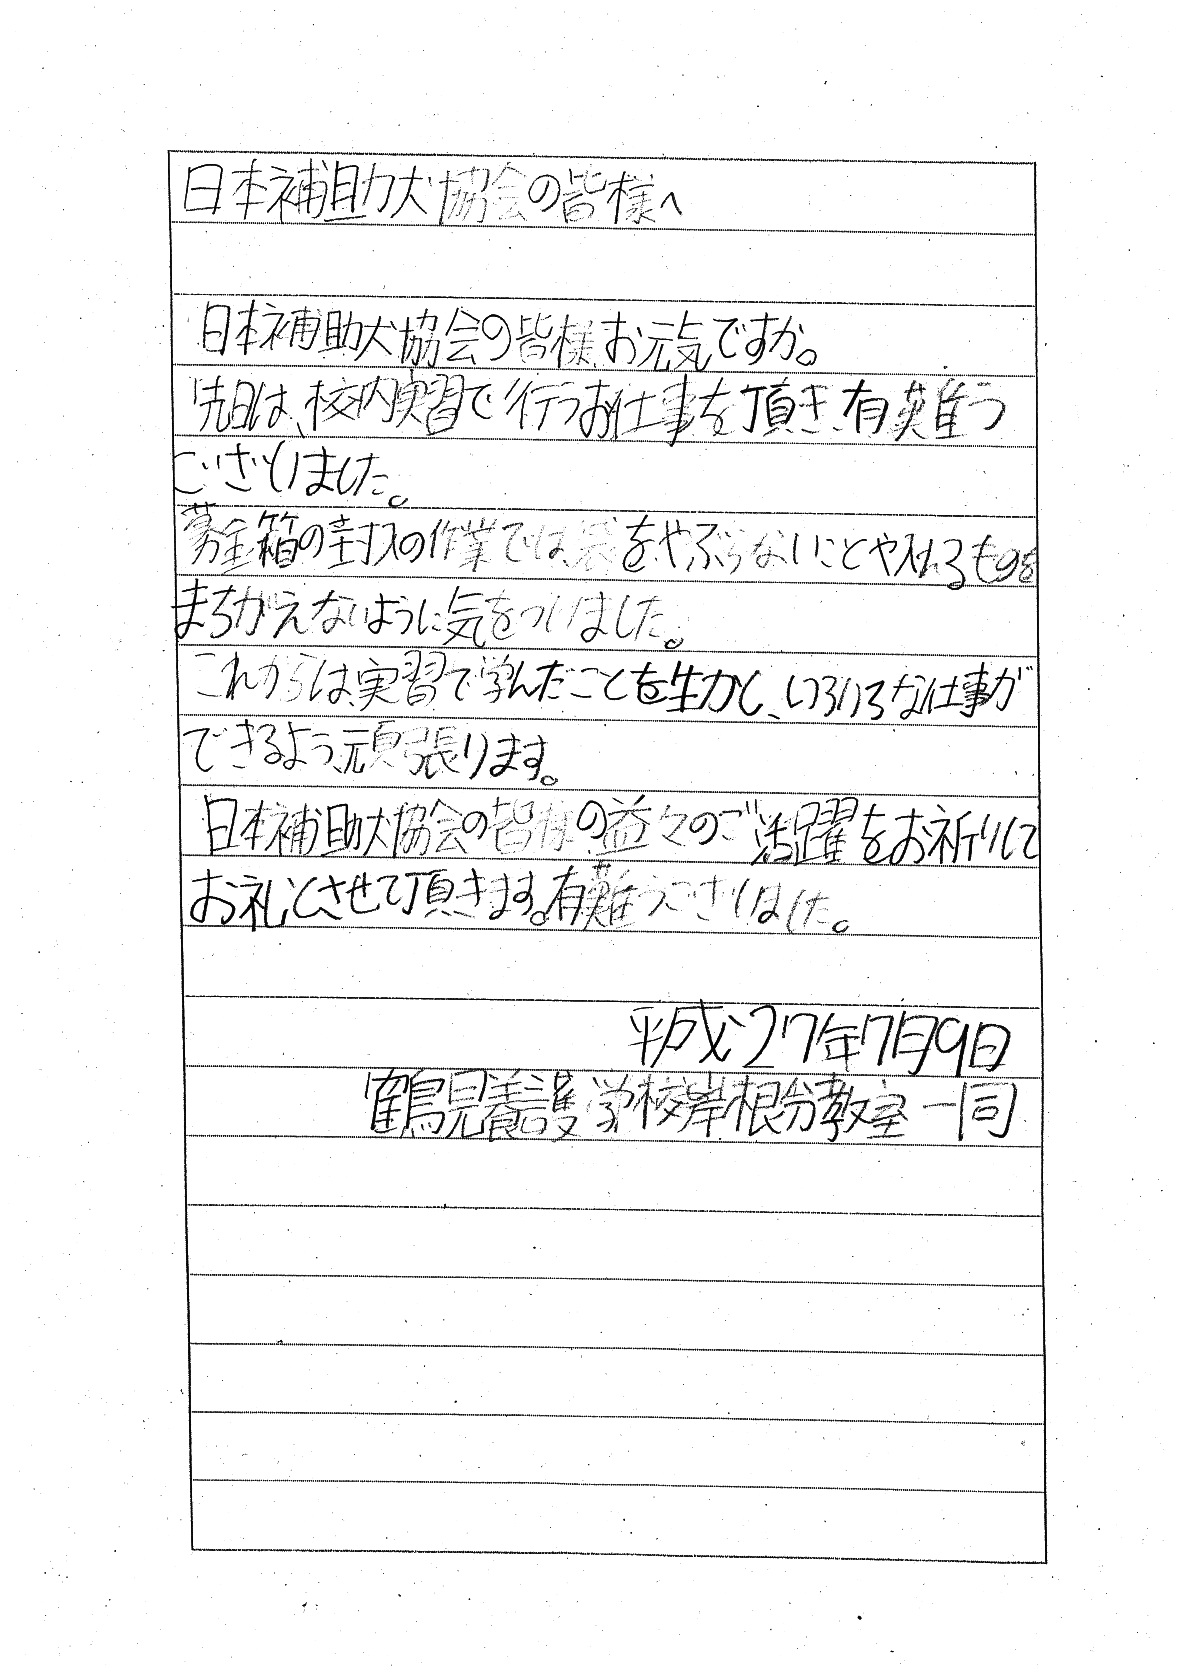 日本補助犬協会の皆様へ
日本補助犬協会の皆様、お元気ですか。
先日は、校内実習で行うお仕事を頂き、有難う
ございました。
募金箱の封入の作業では、袋をやぶらないことや入れるものを
まちがえないように気をつけました。
これからは、実習で学んだことを生かし、いろいろな仕事が
できるよう、頑張ります。
日本補助犬協会の皆様の益々のご活躍をお祈りして
お礼とさせて頂きます。有難うございました。
平成27年7月9日
鶴見養護学校岸根分教室一同